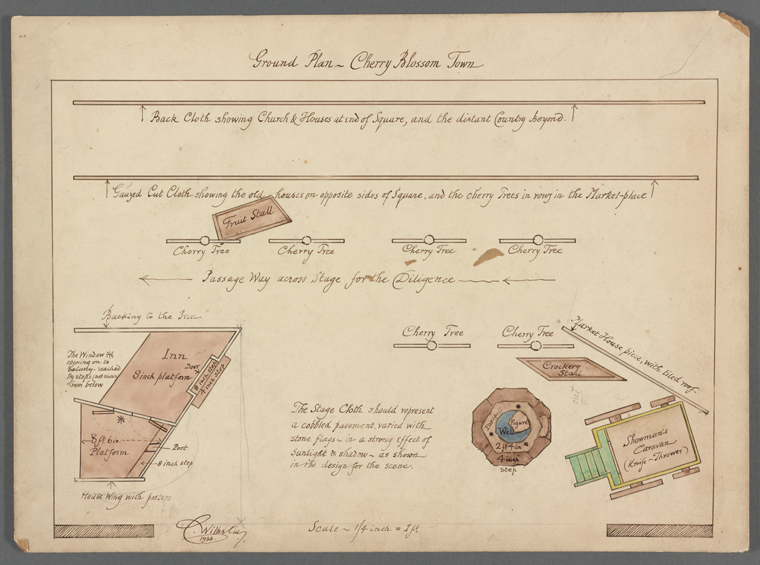 Ground Plan ~ Cherry Blossom Town
Back Cloth showing Church & Houses at end of Square, and the distant Country beyond.
Gauzed Cut Cloth showing the old houses on opposite sides of Square, and the cherry Trees in rows in the Market-place
Fruit Stall
Cherry Tree
Cherry Tree
Cherry Tree
Cherry Tree
Passage Way across Stage for the Diligence
Backing to the Inn
Cherry Tree
Cherry Tree
Market House piece, with tiled roof
The Window
opening on to
Balcony- reached
by steps
from below
Inn
8 inch platform
Door
8 inch step
4 inch step
Crockery
Stall
8 ft 6 in
Platform
Post
8 inch step
House Wing with
The Stage Cloth should represent
a cobbled pavement, varied with
stone flags - in a strong effect of
sunlight & shadow - as shown
in the design for the scene.
Figure
Well
4 inch
step
Showman's
Caravan
(Knife-Thrower)
Scale ~ 1/4 inch = 1 ft